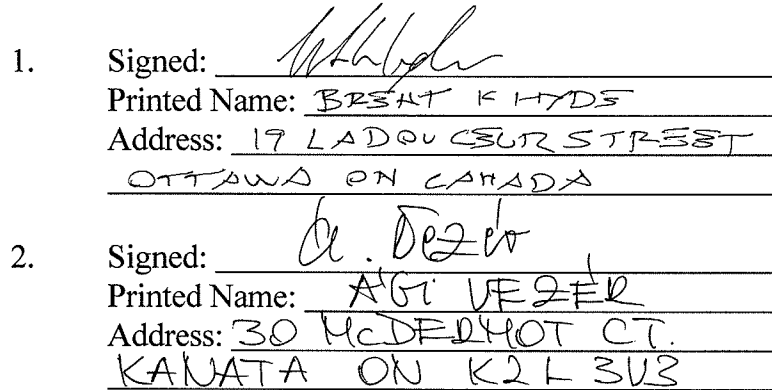 1. Signed:
Printed Name: BRENT K HYDE
Address: 19 LADOUCEUR STREET
OTTAWA ON CANADA
2. Signed: A. Vezér
Printed Name: ÁGI VEZÉR
Address: 30 McDERMOT CT.
KANATA ON K2L 3V3